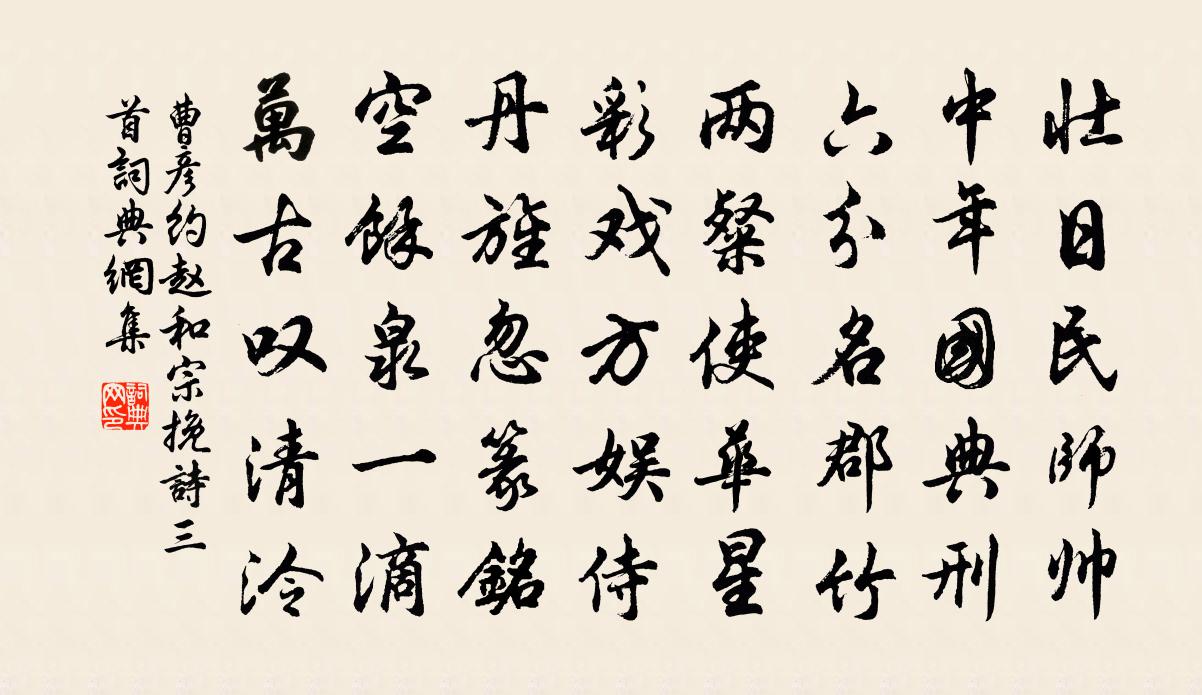 壮日民师帅
中年國典刑
六分名郡竹
两粲使華星
彩戏方娱侍
丹旌忽篆銘
空餘泉一滴
萬古叹清泠
曹彦约赵和宗挽詩三
首詞典網集
詞典网印